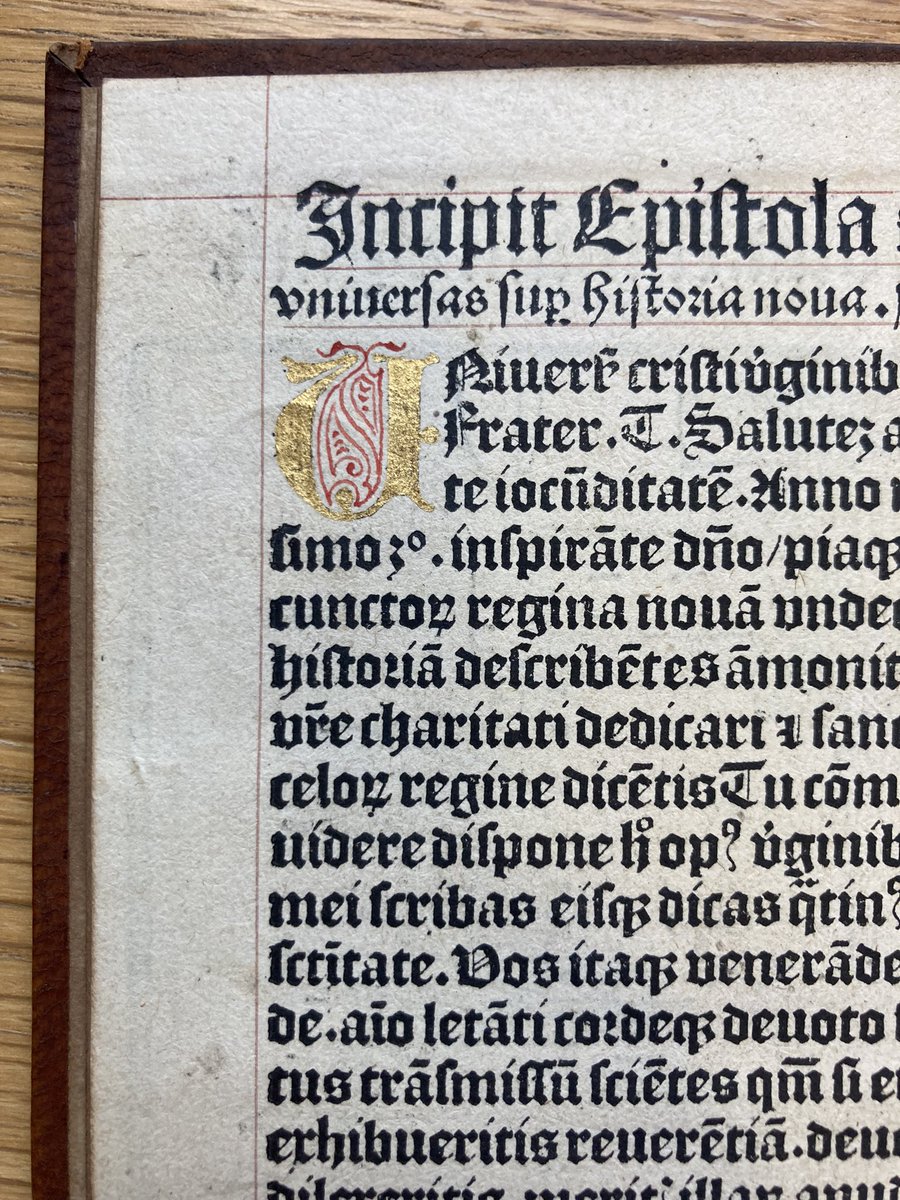 Incipit Epistola
vniuersas suꝑ hiſtoria noua.
UNiuerẜ criſti v̓ginib
Frater. T. Saluteꝫ a
te iocūditatē. Anno
ſimo ꝫº. inſpirāte dn̄o/piaqꝫ
cunctoꝝ regina nouā vndec
hiſtoriā deſcribētes āmonit
vr̄e charitati dedicari ⁊ ſanc
celoꝝ regine dicētis Tu cōm
uidere diſpone hº opꝰ v̓ginib
mei ſcribas eiſqꝫ dicas qͣtinꝰ
ſctītate. Vos itaqꝫ venerāde
de. aīo letāti cordeqꝫ deuoto
tus trāſmiſſū ſciētes qm̄ ſi e
exhibueritis reuerētiā. deuo